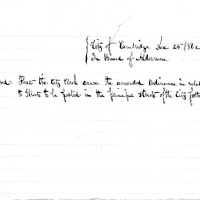 City of Cambridge Dec 24" /
In Board of Aldermen
That the City Clerk cause the amended Ordinance in
to Streets to be posted in the principal streets of the City